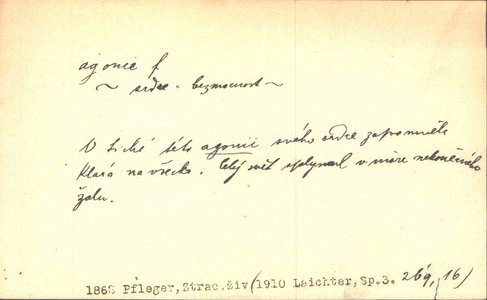 agonie f
~ srdce - bezmocnost ~
V tiché této agonii svého srdce zapomněla
Klára na všecko. Celý svět splynul v moře nekonečného
žalu.
1862 Pfleger, Ztrac. živ (1910 Laichter, Sp.3. 269, 16)